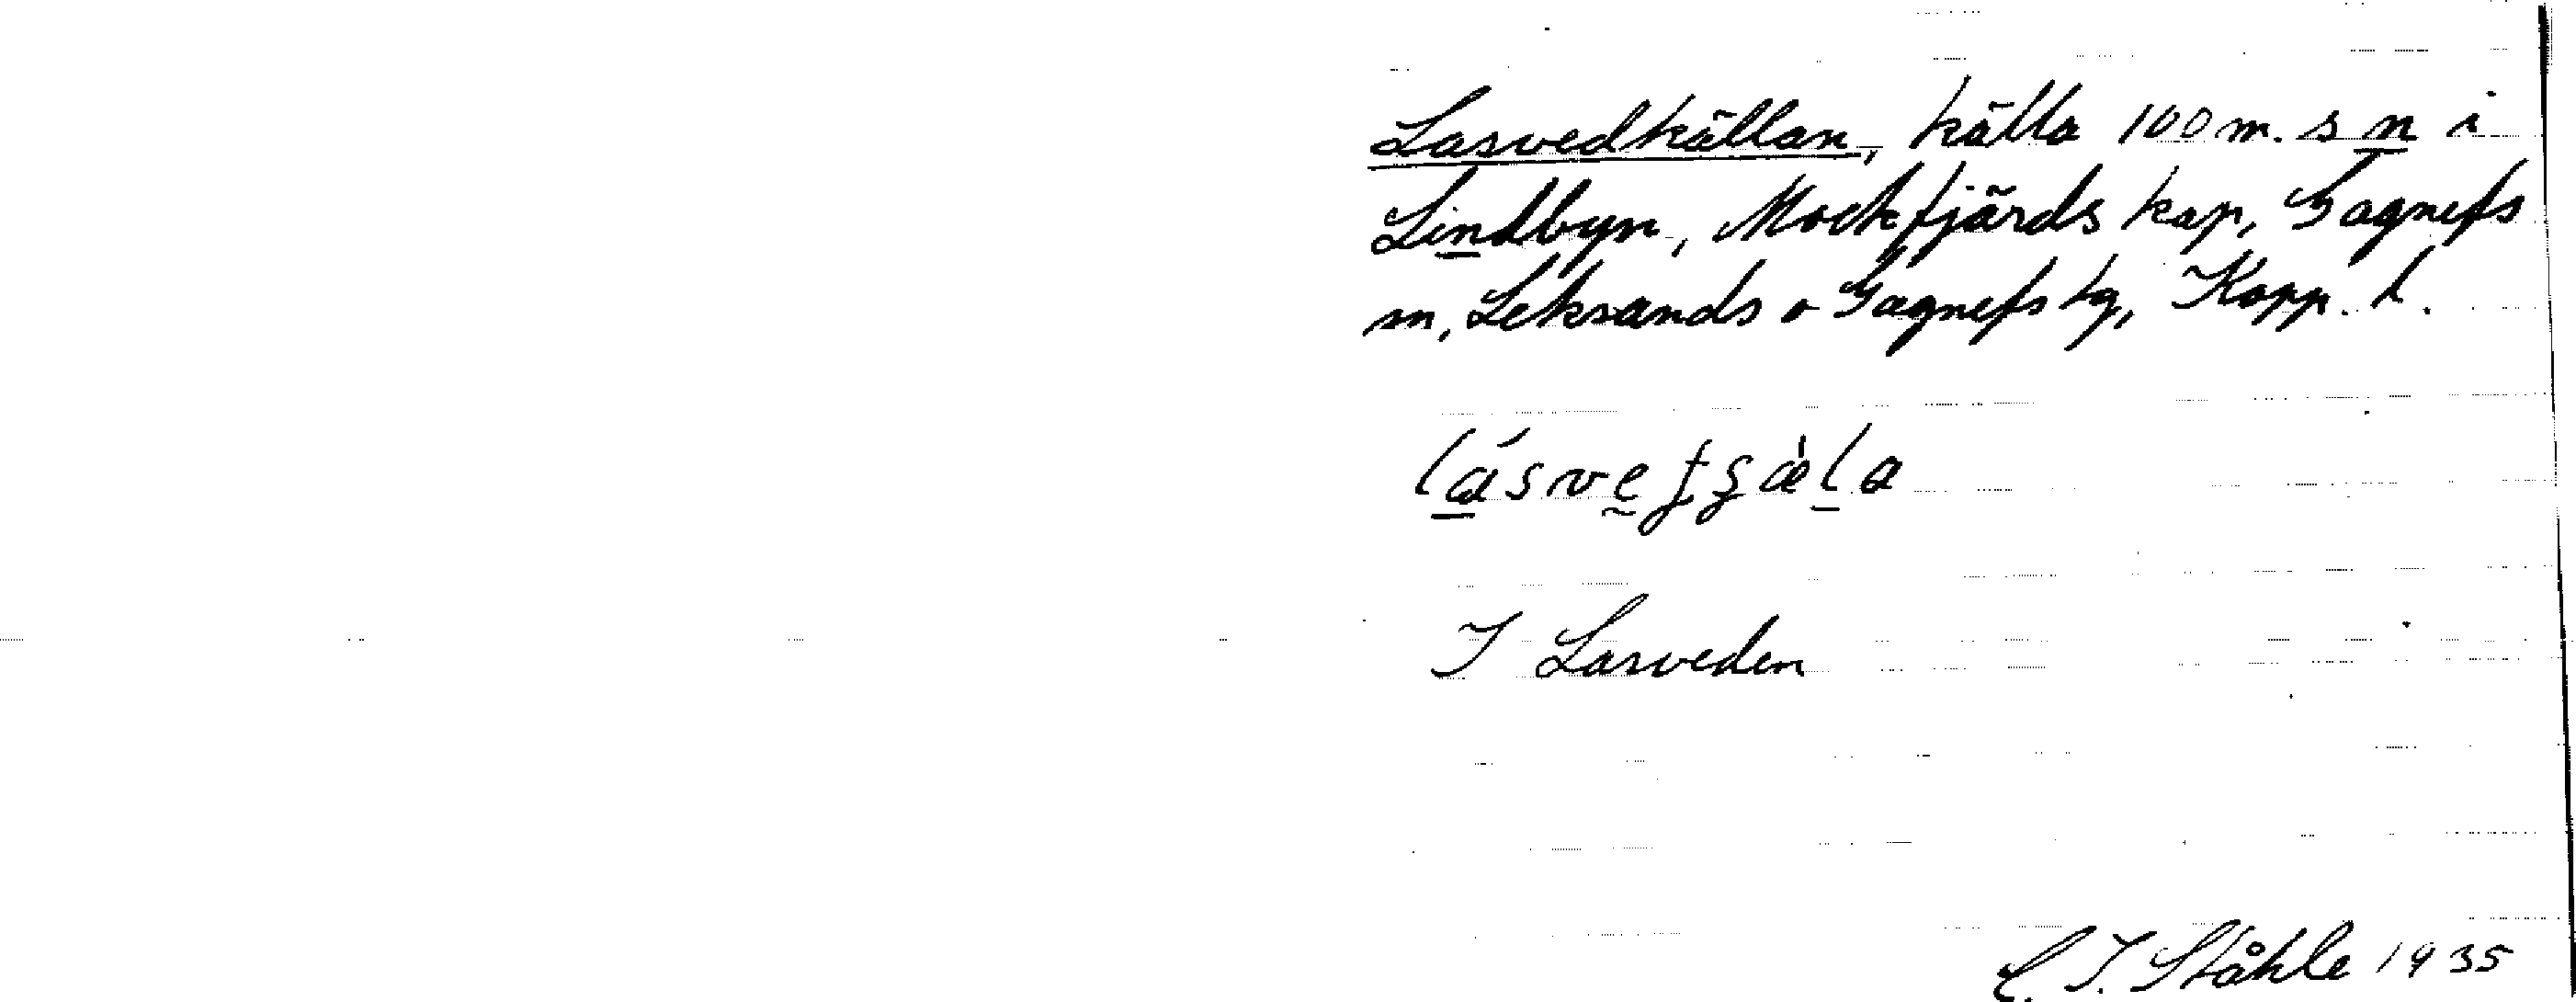 Lasvedkällan, källa 100 m. s n i
Lindbyn, Mockfjärds kap, Gagnefs
sn, Leksands o Gagnefs tg, Kopp. l.
I Lasveden
C. I. Ståhle 1935